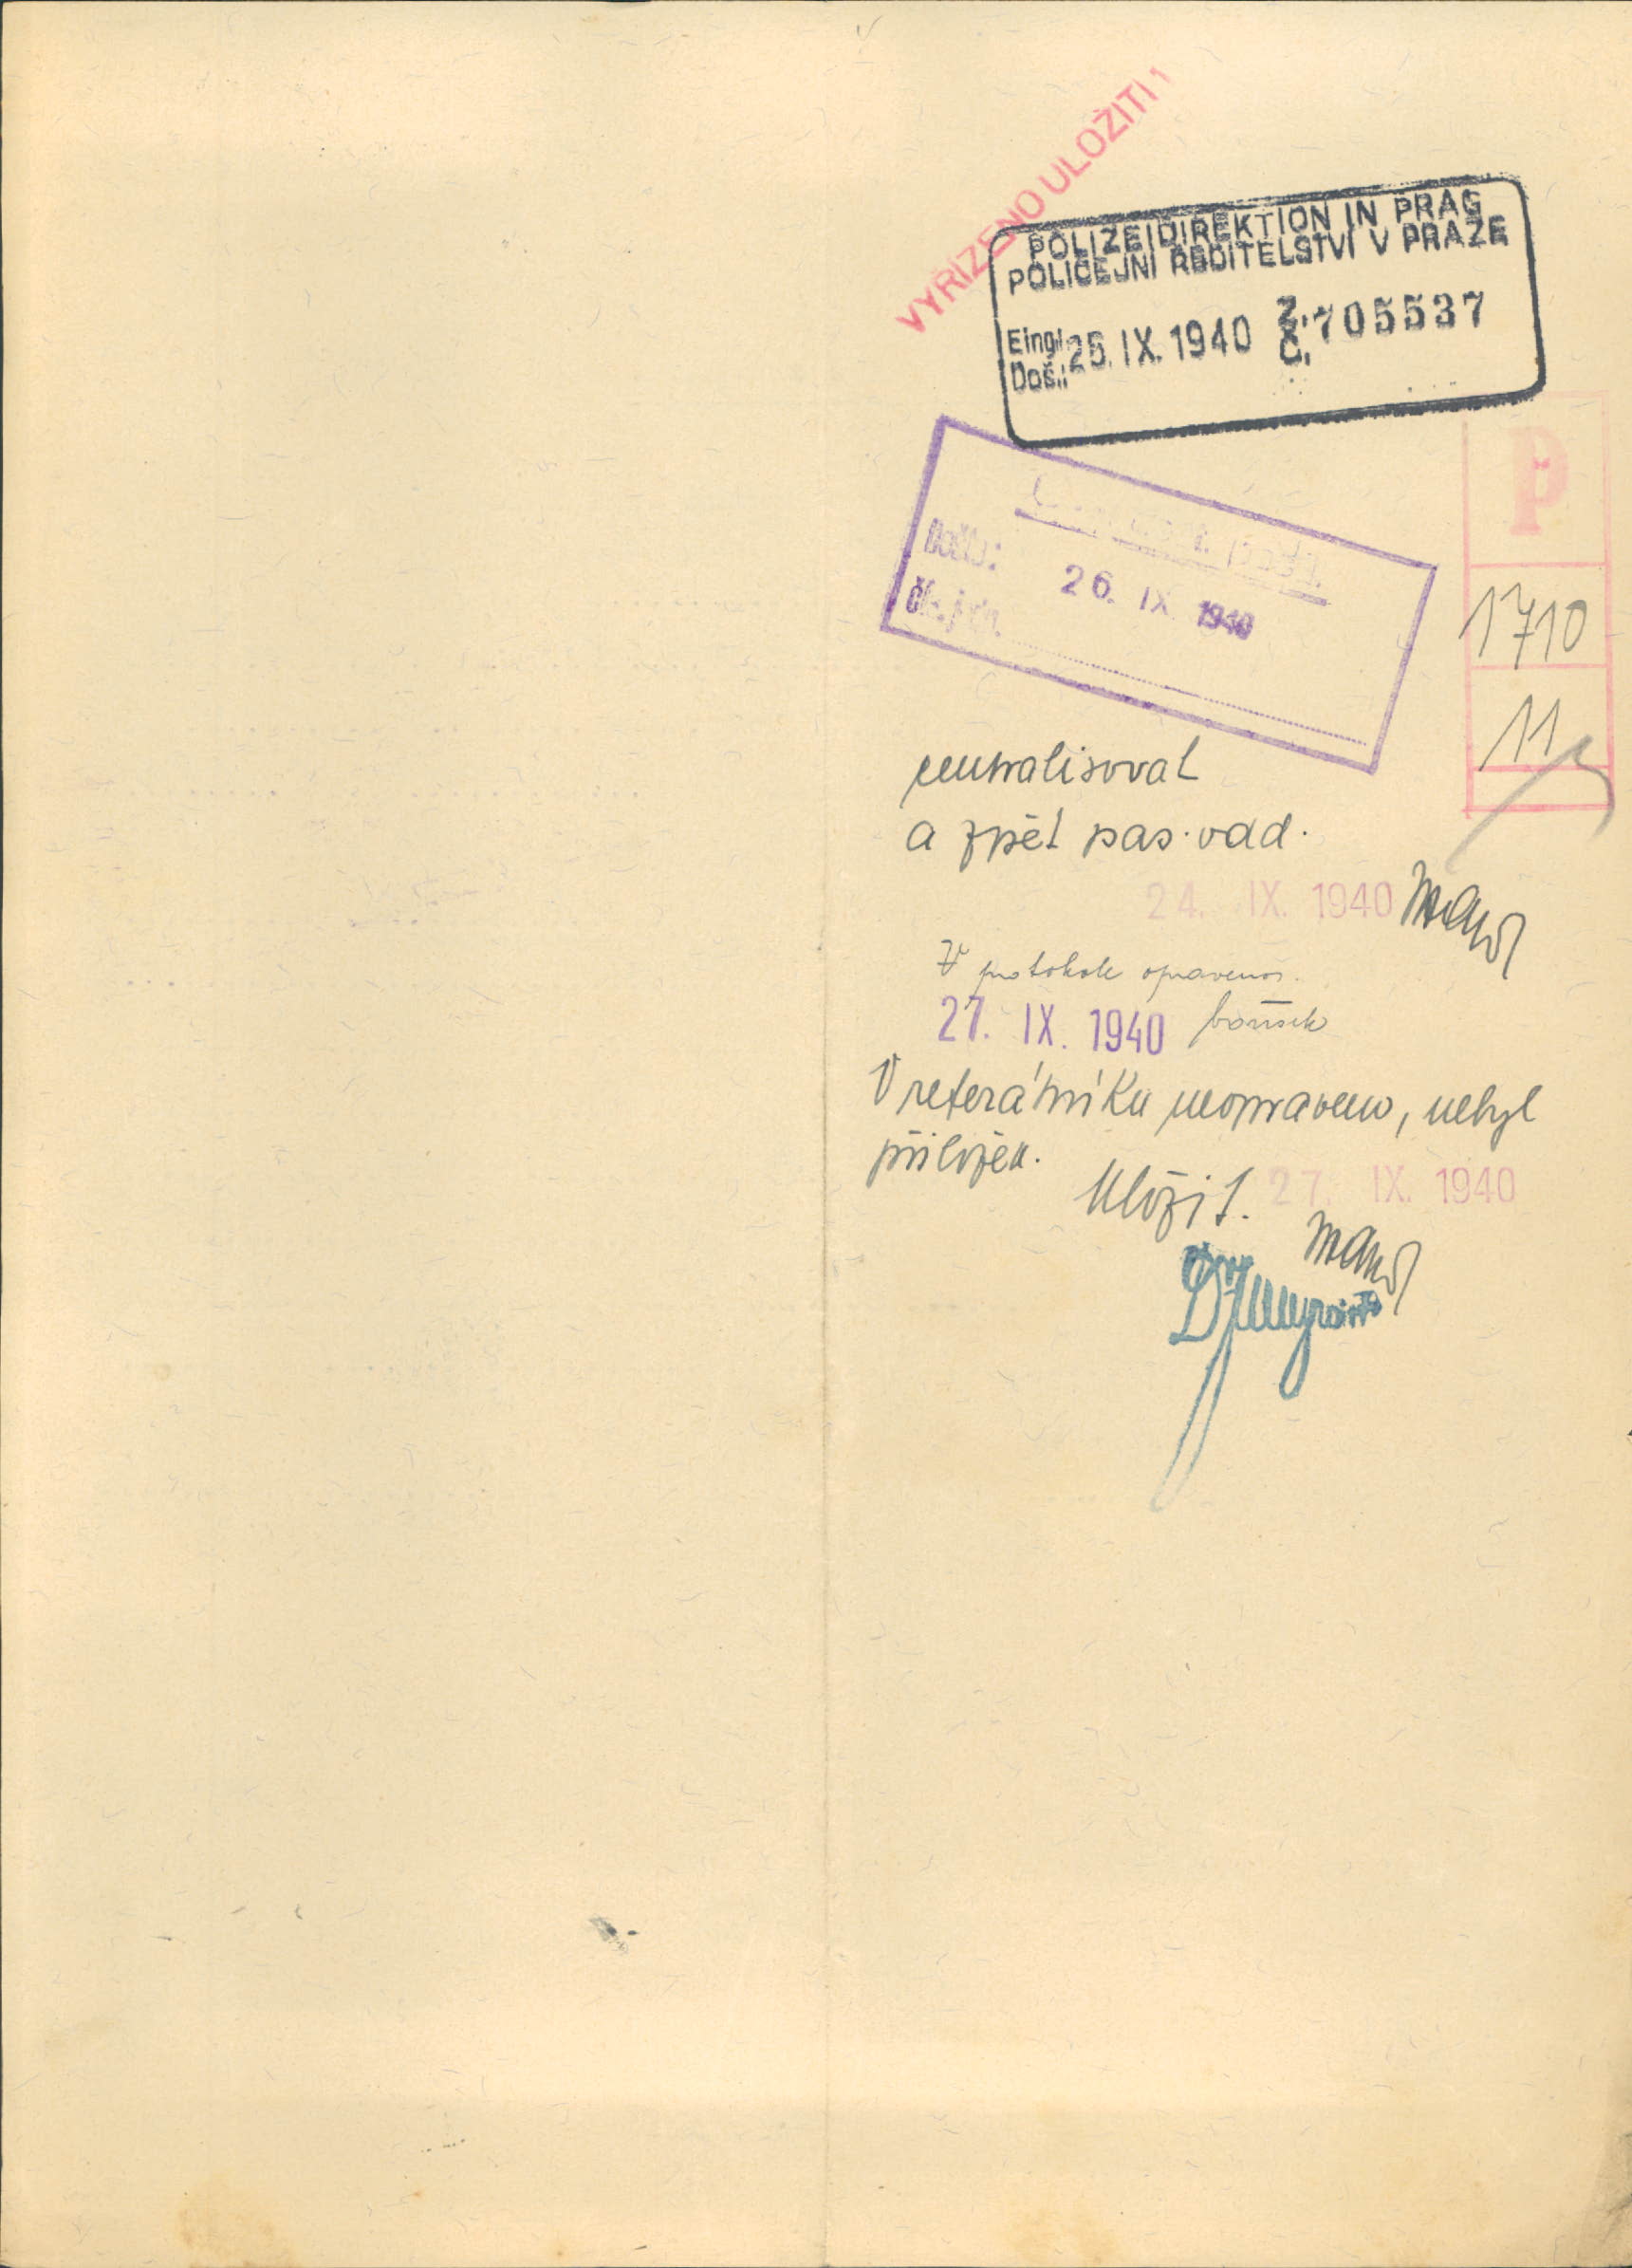 VYŘÍZENO ULOŽITI!
POLIZEIDIREKTION IN PRAG
POLICEJNÍ ŘEDITELSTVÍ V PRAZE
Eingl. 25. IX. 1940 Z. 705537
Doš.: Č.
Došlo: 26. IX 1940
Čís. jedn.
P
1710
11
neutralisovat
a zpět pas. odd.
24. IX. 1940
V protokole opraveno.
27. IX. 1940
V referátníku neopraveno, nebyl
přiložen.
Uložit. 27. IX. 1940